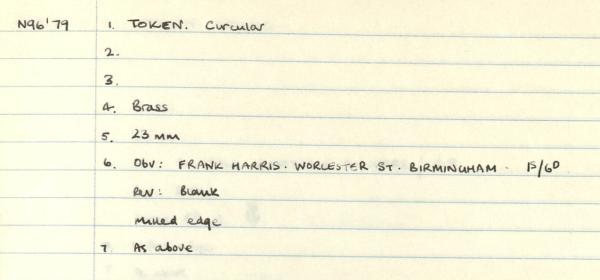 N96'79 1. TOKEN. Circular
2.
3.
4. Brass
5. 23 mm
6. Obv: FRANK HARRIS. WORCESTER ST. BIRMINGHAM. 1S/6D
Rev: Blank
Milled edge
7. As above